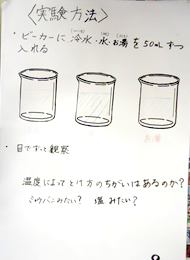 〈実験方法〉
・ビーカーに冷水・水・お湯を50mLずつ
入れる
・目でずっと観察
温度によってとけ方のちがいはあるのか?
みたい? 塩みたい?